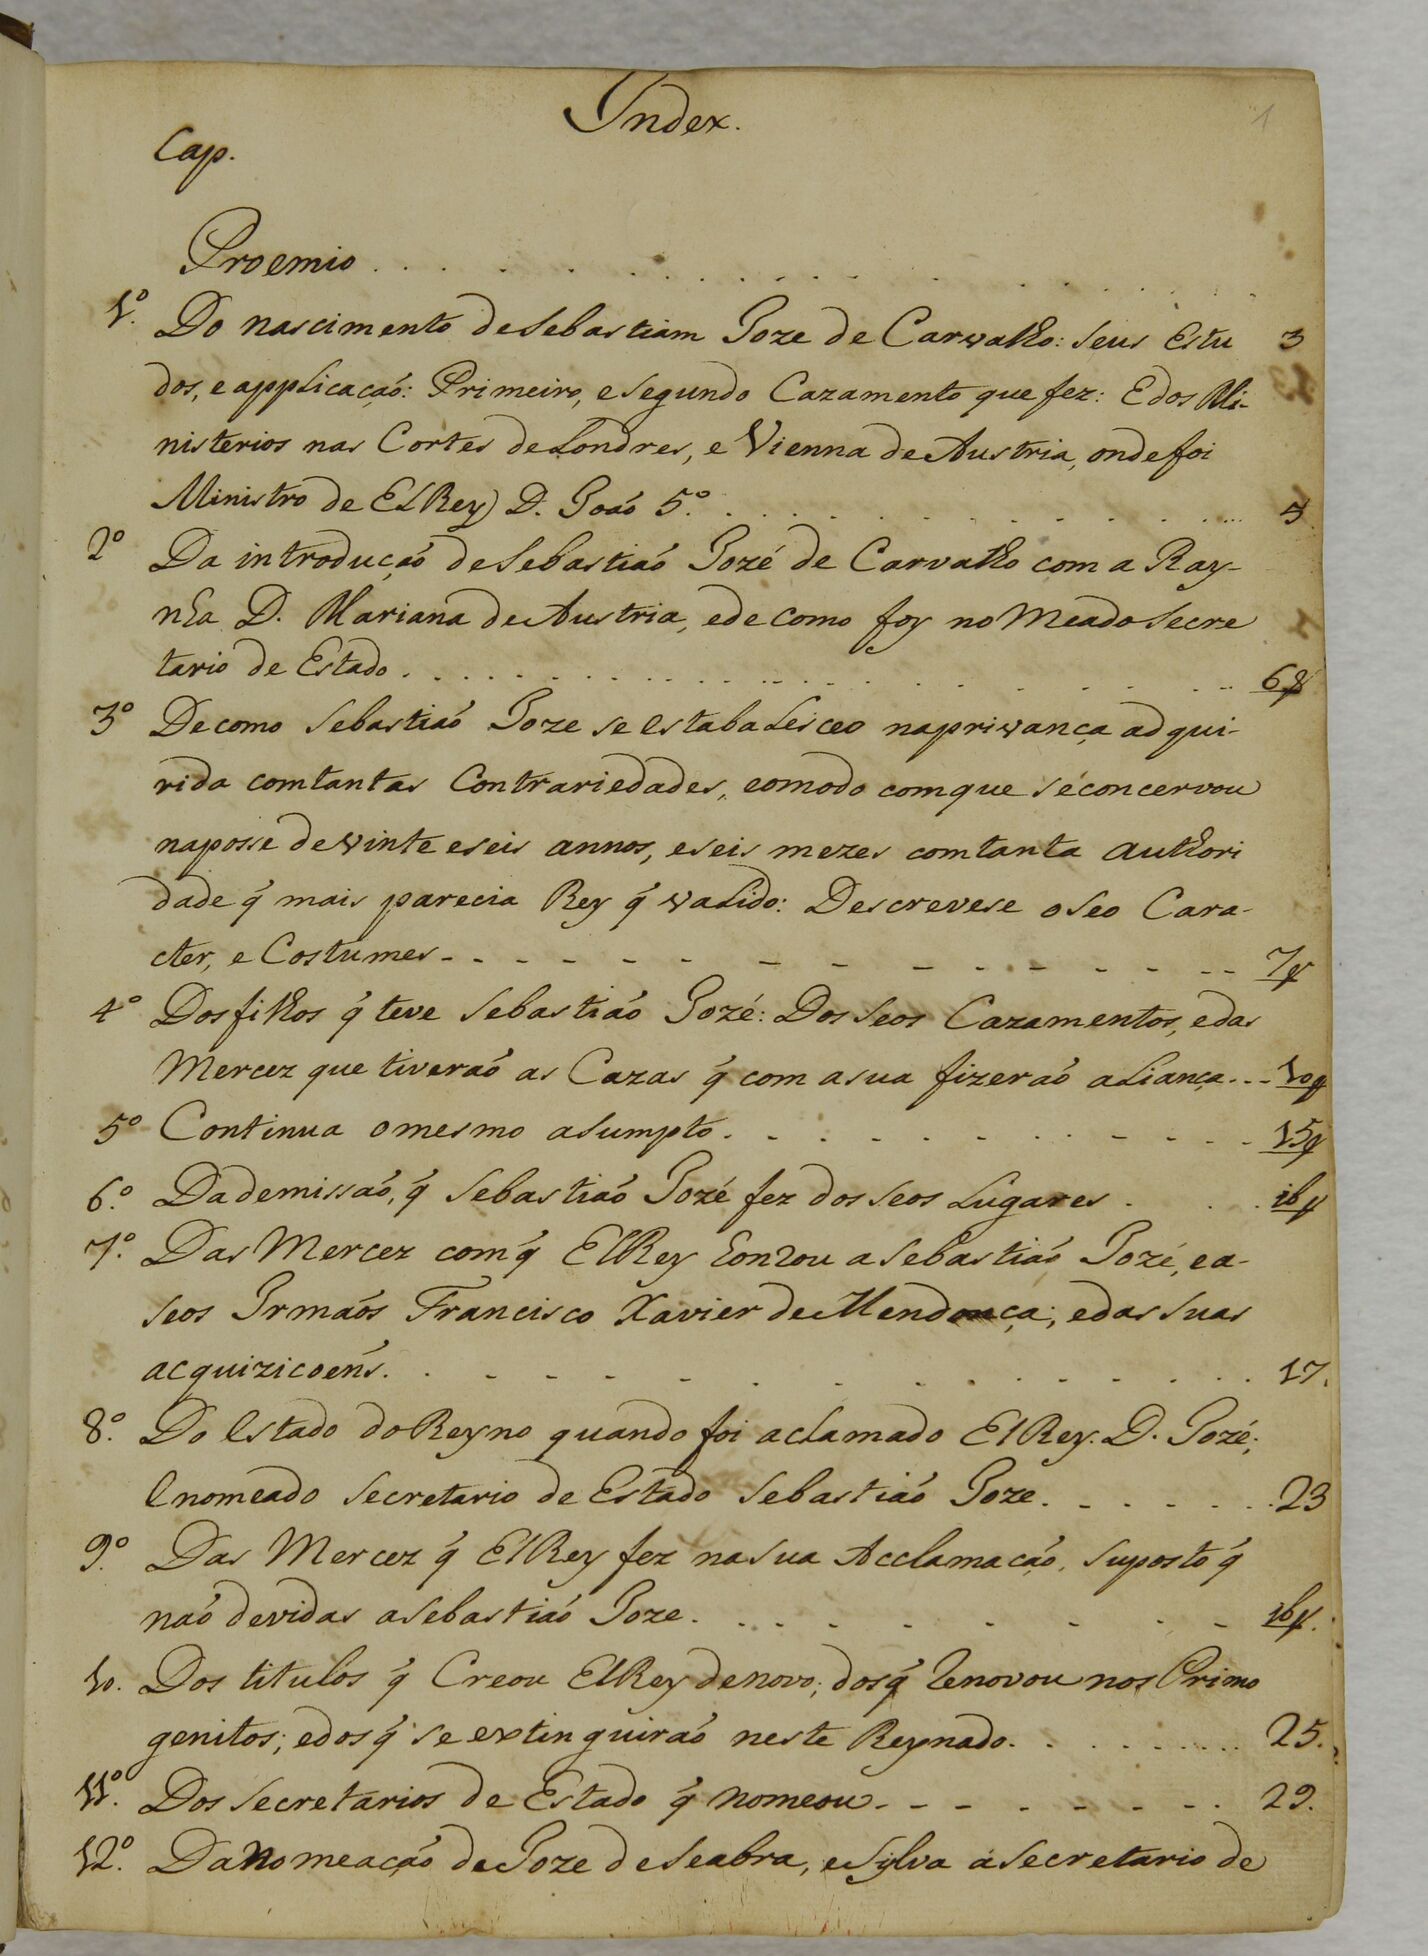 1
Index.
Cap.
Proemio . . . . . . . . . . . . . . . .
1.º Do nascimento de Sebastiam Joze de Carvalho: seus Estu 3
dos, e applicação: Primeiro, e segundo Cazamento que fez: E dos Mi-
nisterios nas Cortes de Londres, e Vienna de Austria, onde foi
Ministro de ElRey D. João 5.º . . . . . . . . . . . . 5
2º Da introdução de Sebastião Jozé de Carvalho com a Ray-
nha D. Mariana de Austria, e de como foy no Meado Secre
tario de Estado . . . . . . . . . . . . . . . 6
3º De como Sebastião Joze se estabalisceo na privança adqui-
rida com tantas Contrariedades, e o modo com que se concervou
na posse de vinte e seis annos, e seis mezes com tanta authori
dade q́ mais parecia Rey q́ valido: Descrevese o seo Cara-
cter, e Costumes - - - - - - - - - - - - - 7
4º Dos filhos q́ teve Sebastião Jozé: Dos seos Cazamentos, e das
Mercez que tiverão as Cazas q́ com a sua fizerão aliança . . - 10
5º Continua o mesmo asumpto . . . . . . . . . . . 15
6.º Da demissão, q́ Sebastião Jozé fez dos seos Lugares . . . 16
7.º Das Mercez com q́ ElRey honrou a Sebastião Jozé, e a-
seos Irmãos Francisco Xavier de Mendonça; e das suas
acquizicoens . . . . . . . . . . . . . . 17.
8.º Do Estado do Reyno quando foi aclamado ElRey. D. Jozé;
E nomeado Secretario de Estado Sebastião Joze . . . . . . . 23
9.º Das Mercez q́ ElRey fez na sua Acclamação, suposto q́
não devidas a Sebastião Joze . . . . . . . . . 16.
10. Dos titulos q́ Creou ElRey de novo; dos q́ renovou nos Primo
genitos; e dos q́ se extinguirão neste Reynado . . . . . . . . 25.
11.º Dos Secretarios de Estado q́ nomeou - - - - - - - . . 29.
12.º Da Nomeação de Joze de Seabra, e Sylva á Secretario de